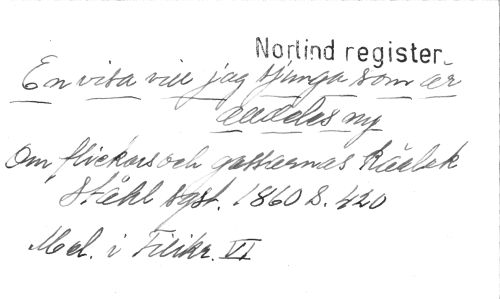 Norlind register.
En visa vill jag sjunga som är
alldeles ny
Om flickors och gossarnas kärlek
Ståhl sgst. 1860 S. 420
Mel. i Filikr. VI